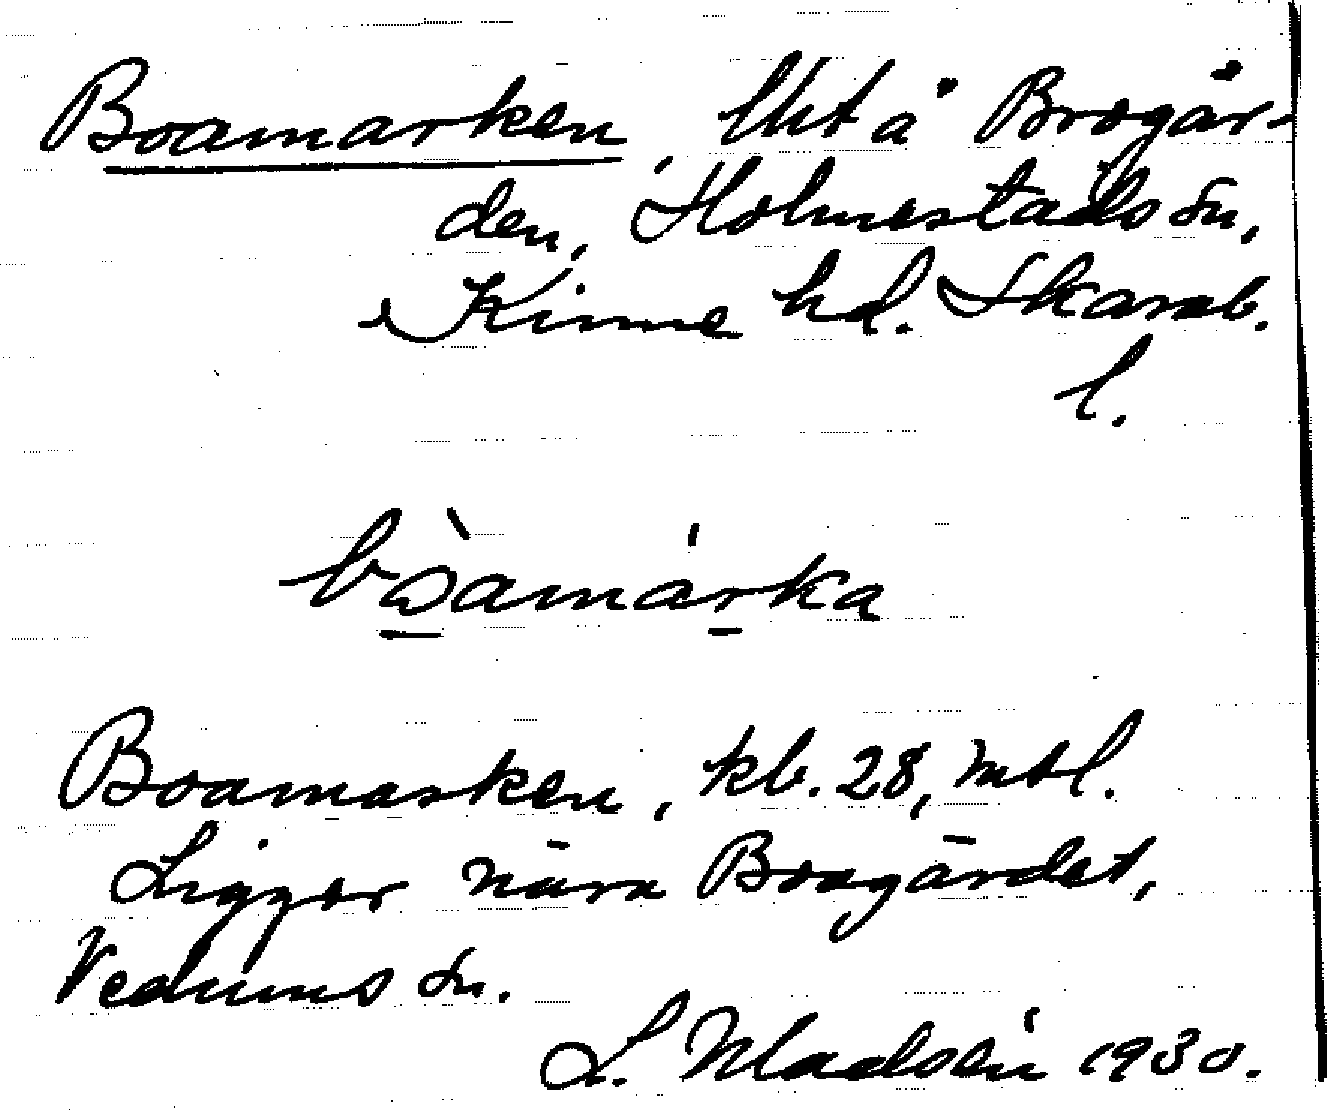 Boamarken, lht å Brogår-
den, Holmestads sn,
Kinne hd. Skarab.
l.
bòamárka
Boamarken, kb. 28, mtl.
Ligger nära Boagärdet,
Vedums sn.
L. Madsén 1930.